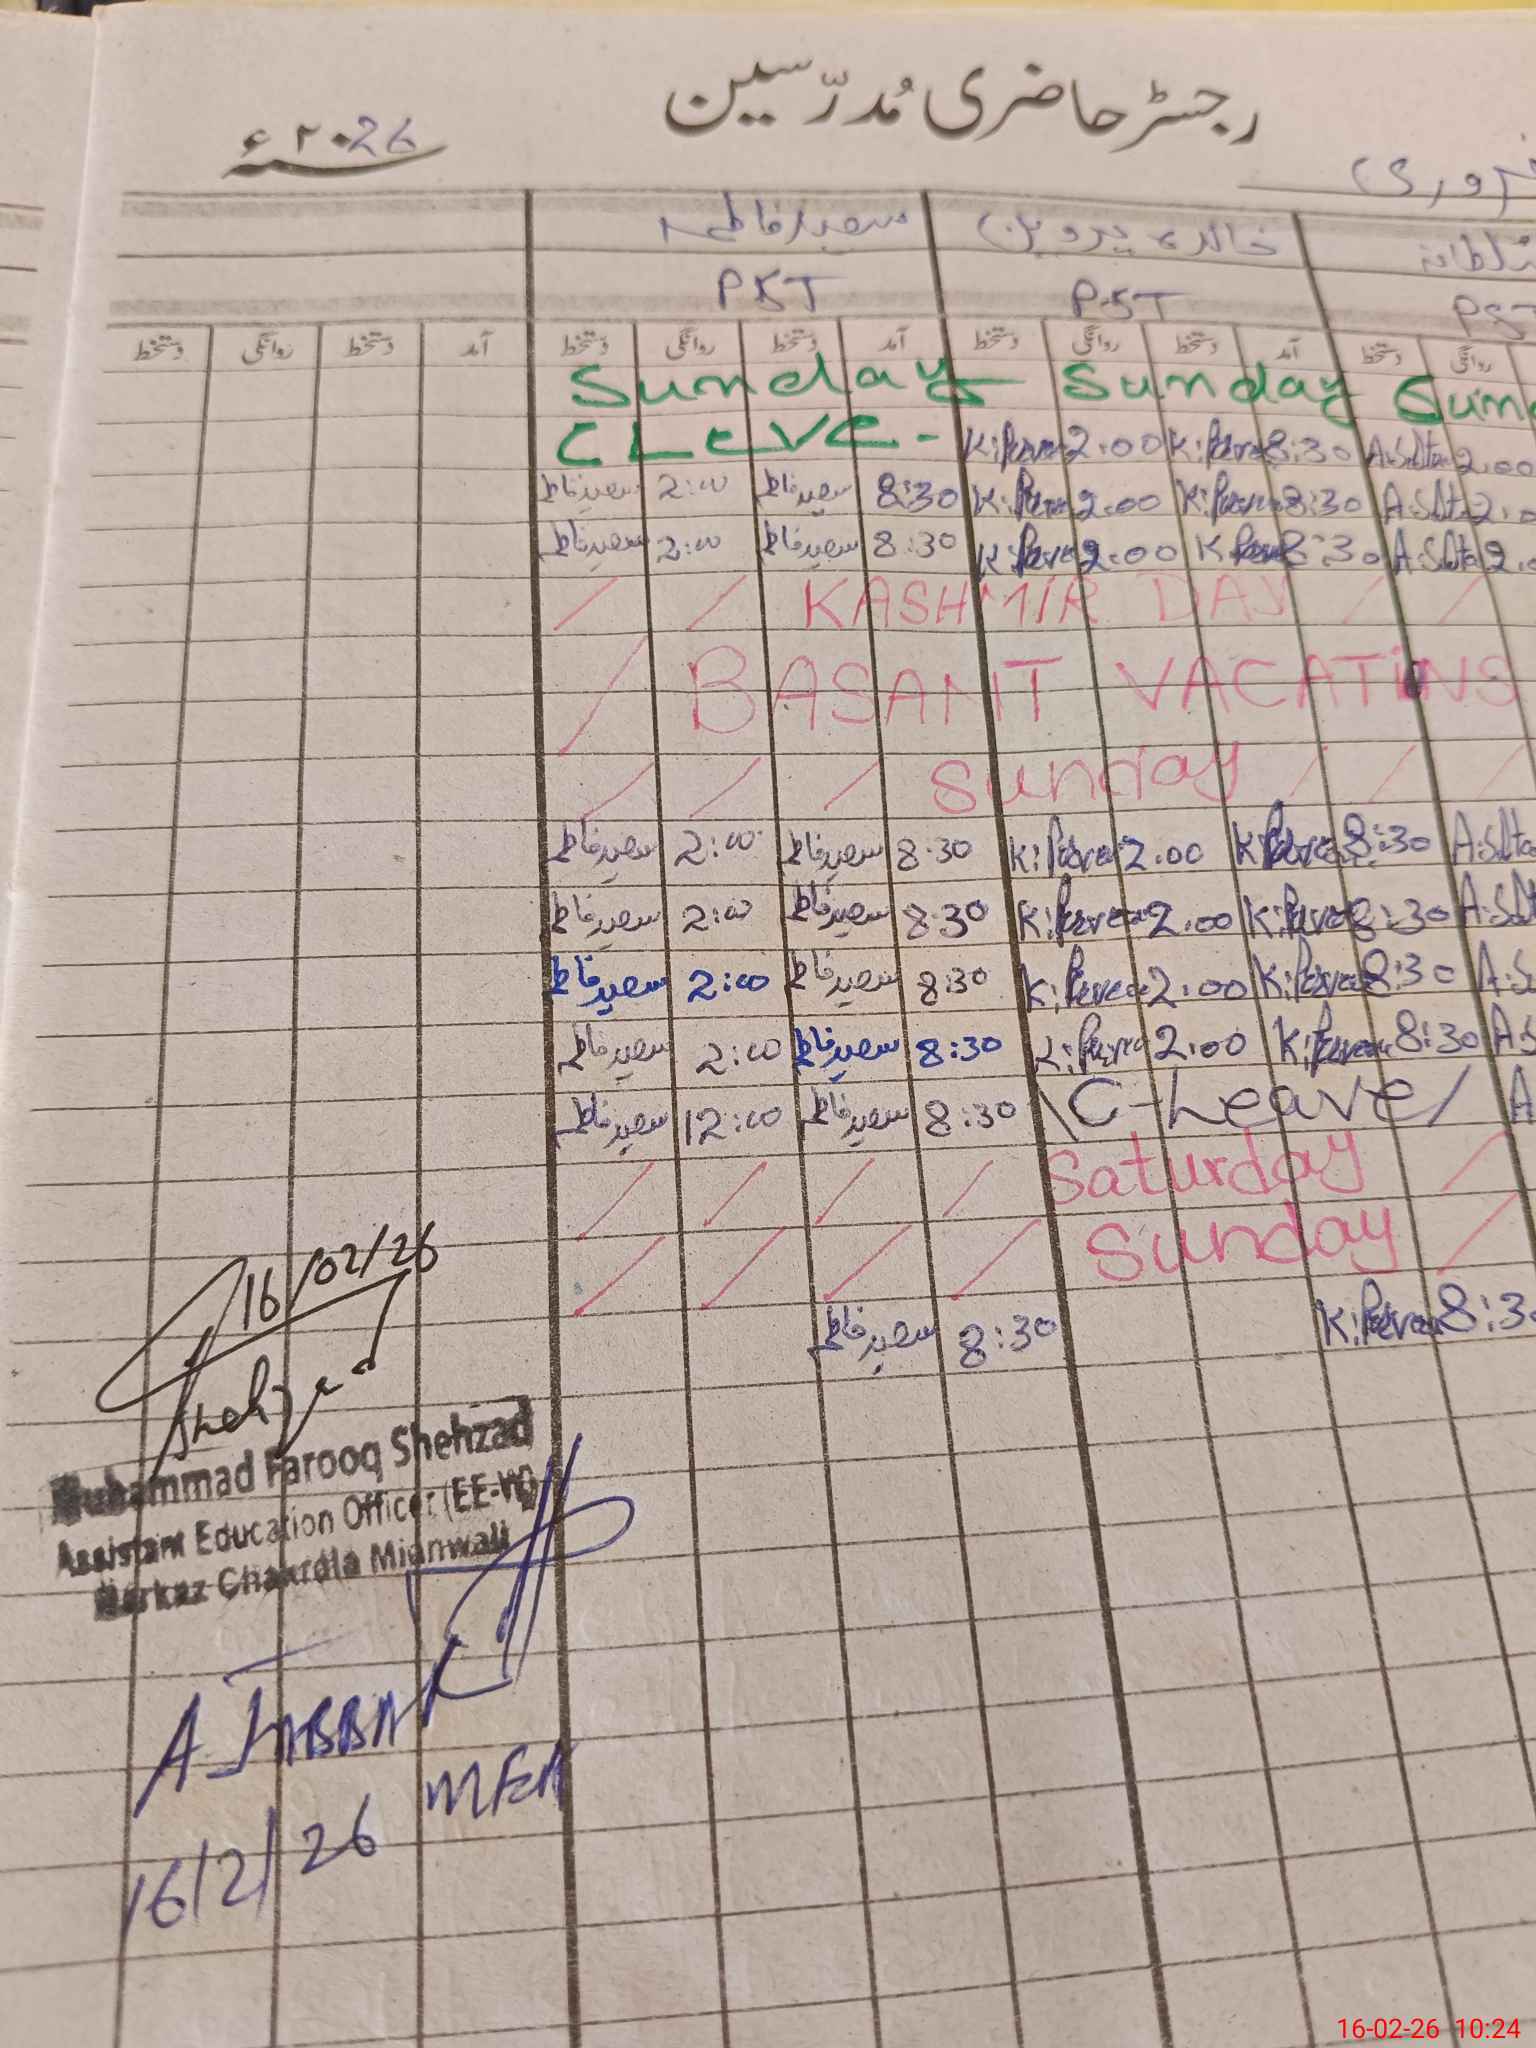 رجسٹر حاضری مُدرّسین
۲۰26ء
فروری
سعید فاطمہ خالدہ پروین سلطانہ
PST PST PST
آمد دستخط روانگی دستخط آمد دستخط روانگی دستخط آمد دستخط روانگی دستخط
Sunday Sunday Sun
C LEVE - K:Parve 2.00 K:Parve 8:30 A.Slta 2.00
سعید فاطمہ 2:00 سعید فاطمہ 8:30 K:Parve 2.00 K:Parve 8:30 A.Slta 2.0
سعید فاطمہ 2:00 سعید فاطمہ 8:30 K:Parve 2.00 K:Parve 8:30 A.Slta 2.0
/ / KASHMIR DAY / /
/ BASANT VACATINS
/ / / Sunday / / /
سعید فاطمہ 2:00 سعید فاطمہ 8:30 K:Parve 2.00 K:Parve 8:30 A.Slta
سعید فاطمہ 2:00 سعید فاطمہ 8:30 K:Parve 2.00 K:Parve 8:30 A.Slt
سعید فاطمہ 2:00 سعید فاطمہ 8:30 K:Parve 2.00 K:Parve 8:30 A.S
سعید فاطمہ 2:00 سعید فاطمہ 8:30 K:Parve 2.00 K:Parve 8:30 A.S
سعید فاطمہ 12:00 سعید فاطمہ 8:30 \ C-Leave / A
/ / / / Saturday /
/ / / / Sunday /
سعید فاطمہ 8:30 K:Parve 8:3
16/02/26
Shehzad
Muhammad Farooq Shehzad
Assistant Education Officer (EE-W)
Markaz Chakrala Mianwali
A JABBAR
MEA
16/2/26
16-02-26 10:24